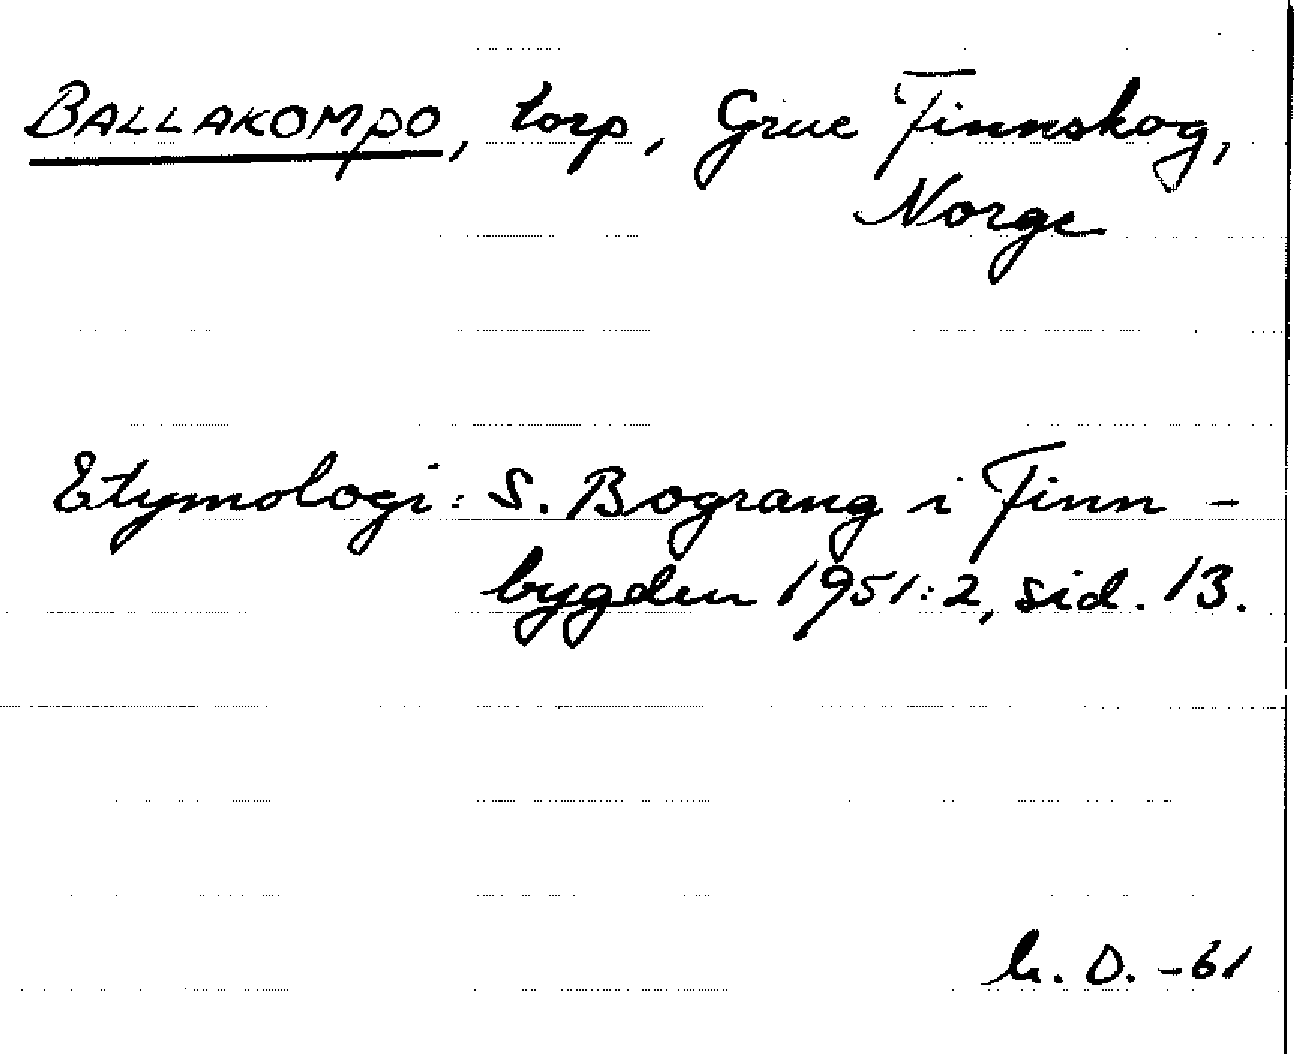 BALLAKOMPO, torp, Grue Finnskog,
Norge
Etymologi: S. Bograng i Finn-
bygden 1951:2, sid. 13.
h. O. -61